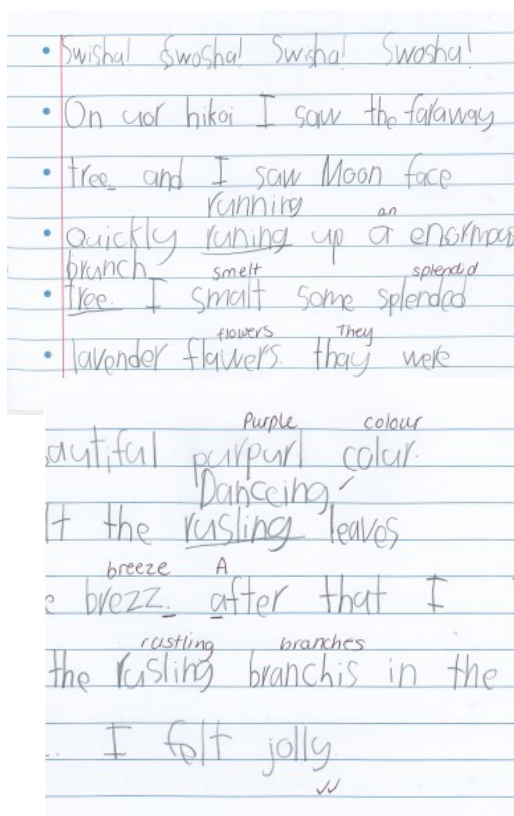 Swisha! Swosha! Swisha! Swosha!
On uor hikoi I saw the faraway
tree and I saw Moon face
running an
quickly runing up a enormous
branch smelt splendid
tree. I smalt some splended
flowers They
lavender flawers. thay were
Purple colour
autiful purpurl colur.
Danceing ✓
the rusling leaves
breeze A
brezz. after that I
rustling branches
the rusling branchis in the
I felt jolly
✓✓